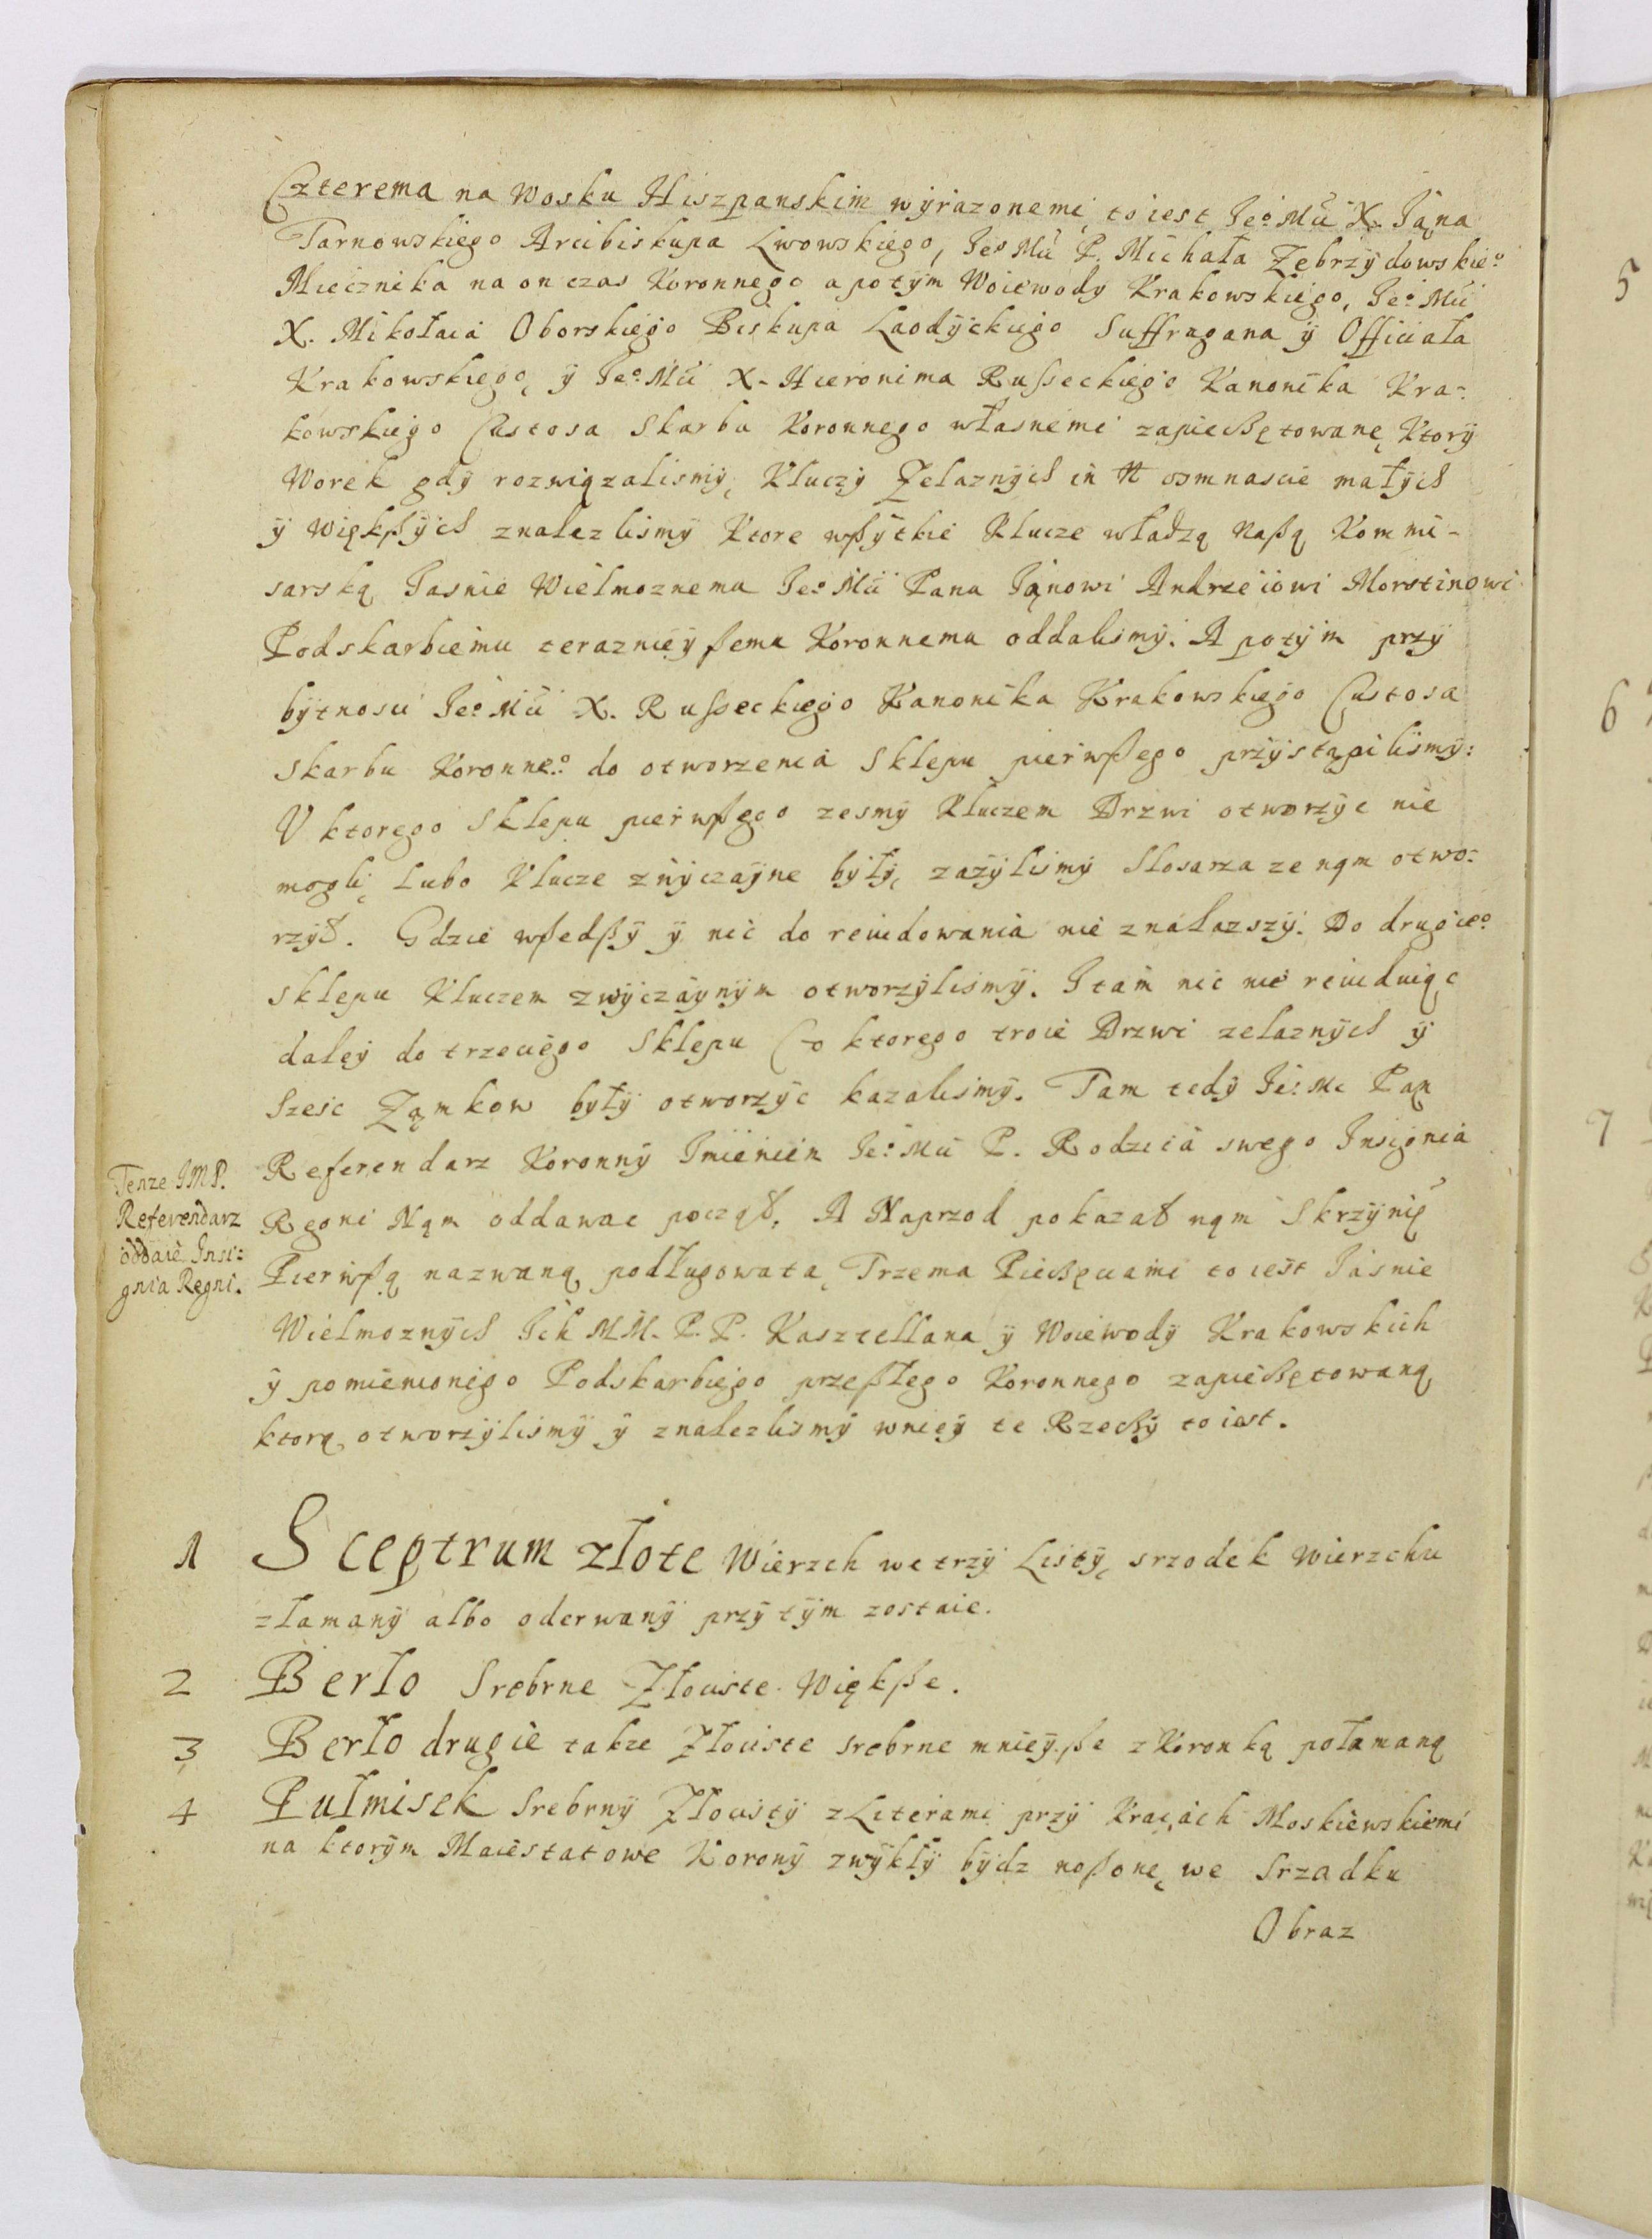 Czterema na Wosku Hiszpanskim wyrazonemi, to iest Je.º Mći X. Jąna
Tarnowskiego Arcibiskupa Lwowskiego, Je.º Mći P. Michała Zebrzydowskie.º
Miecznika na on czas Koronnego a potym Woiewody Krakowskiego, Je.º Mći
X. Mikołaia Oborskiego Biskupa Laodyckiego Suffragana ÿ Officiała
Krakowskiego, ÿ Je.º Mći X. Hieronima Rußeckiego Kanonika Kra-
kowskiego Custosa Skarbu Koronnego własnemi zapieczętowanę, Ktory
Worek gdÿ rozwiązalismÿ, Kluczÿ Zelaznÿch in N osmnascie małÿch
ÿ Więkßÿch znalezlismÿ Ktore wßÿtkie Klucze władzą Naßą Kommi-
sarską Jasnie Wielmoznemu Je.º Mći Panu Jąnowi Andrzeiowi Morstinowi
Podskarbiemu teraznieÿßemu Koronnemu oddalismÿ. A potÿm przÿ
bÿtnosci Je.º Mći X. Rußeckiego Kanonika Krakowskiego Custosa
Skarbu Koronne.º do otworzenia Sklepu pierwßego przÿstąpilismÿ:
U ktorego Sklepu pierwßego zesmÿ Kluczem Drzwi otworzÿc nie
mogli, lubo Klucze zwÿczaÿne bÿłÿ, zazÿlismÿ Slosarza ze nąm otwo-
rzÿł. Gdzie wßedßÿ ÿ nic do reuidowania nie znalazszÿ. Do drugie.º
Sklepu Kluczem zwÿczaÿnÿm otworzÿlismÿ. I tam nic nie reuiduiąc
daleÿ do trzeciego Sklepu Co ktorego troie Drzwi zelaznÿch ÿ
Szesc Ząmkow bÿłÿ otworzÿc kazalismÿ. Tam tedÿ Je.º Mc Pąn
Referendarz Koronnÿ Imieniem Je.º Mći P. Rodzica swego Insignia
Regni Nąm oddawac począł, A Naprzod pokazał nąm Skrzÿnię
Pierwßą nazwaną podługowatą, Trzema Pieczęciami to iest Jasnie
Wielmoznÿch Ich M.M. P.P. Kasztellana ÿ Woiewodÿ Krakowskich
ÿ pomienionego Podskarbiego przeßłego Koronnego zapieczętowaną,
ktorą otworzÿlismÿ ÿ znalezlismÿ wnieÿ te Rzeczÿ to iest.
Tenze IMP.
Referendarz
oddaie Insi-
gnia Regni.
1 Sceptrum złote Wierzch we trzÿ Listÿ, srzodek Wierzchu
złamanÿ albo oderwanÿ przÿ tÿm zostaie.
2 Berło Srebrne Złociste Więkße.
3 Berło drugie takze Złociste srebrne mnieÿße z Koronką połamaną
4 Pułmisek Srebrnÿ Złocistÿ z Literami przÿ Kraiach Moskiewskiemi
na ktorÿm Maiestatowe Koronÿ zwÿkłÿ bÿdz noßone, we Srzadku
Obraz
5
6
7